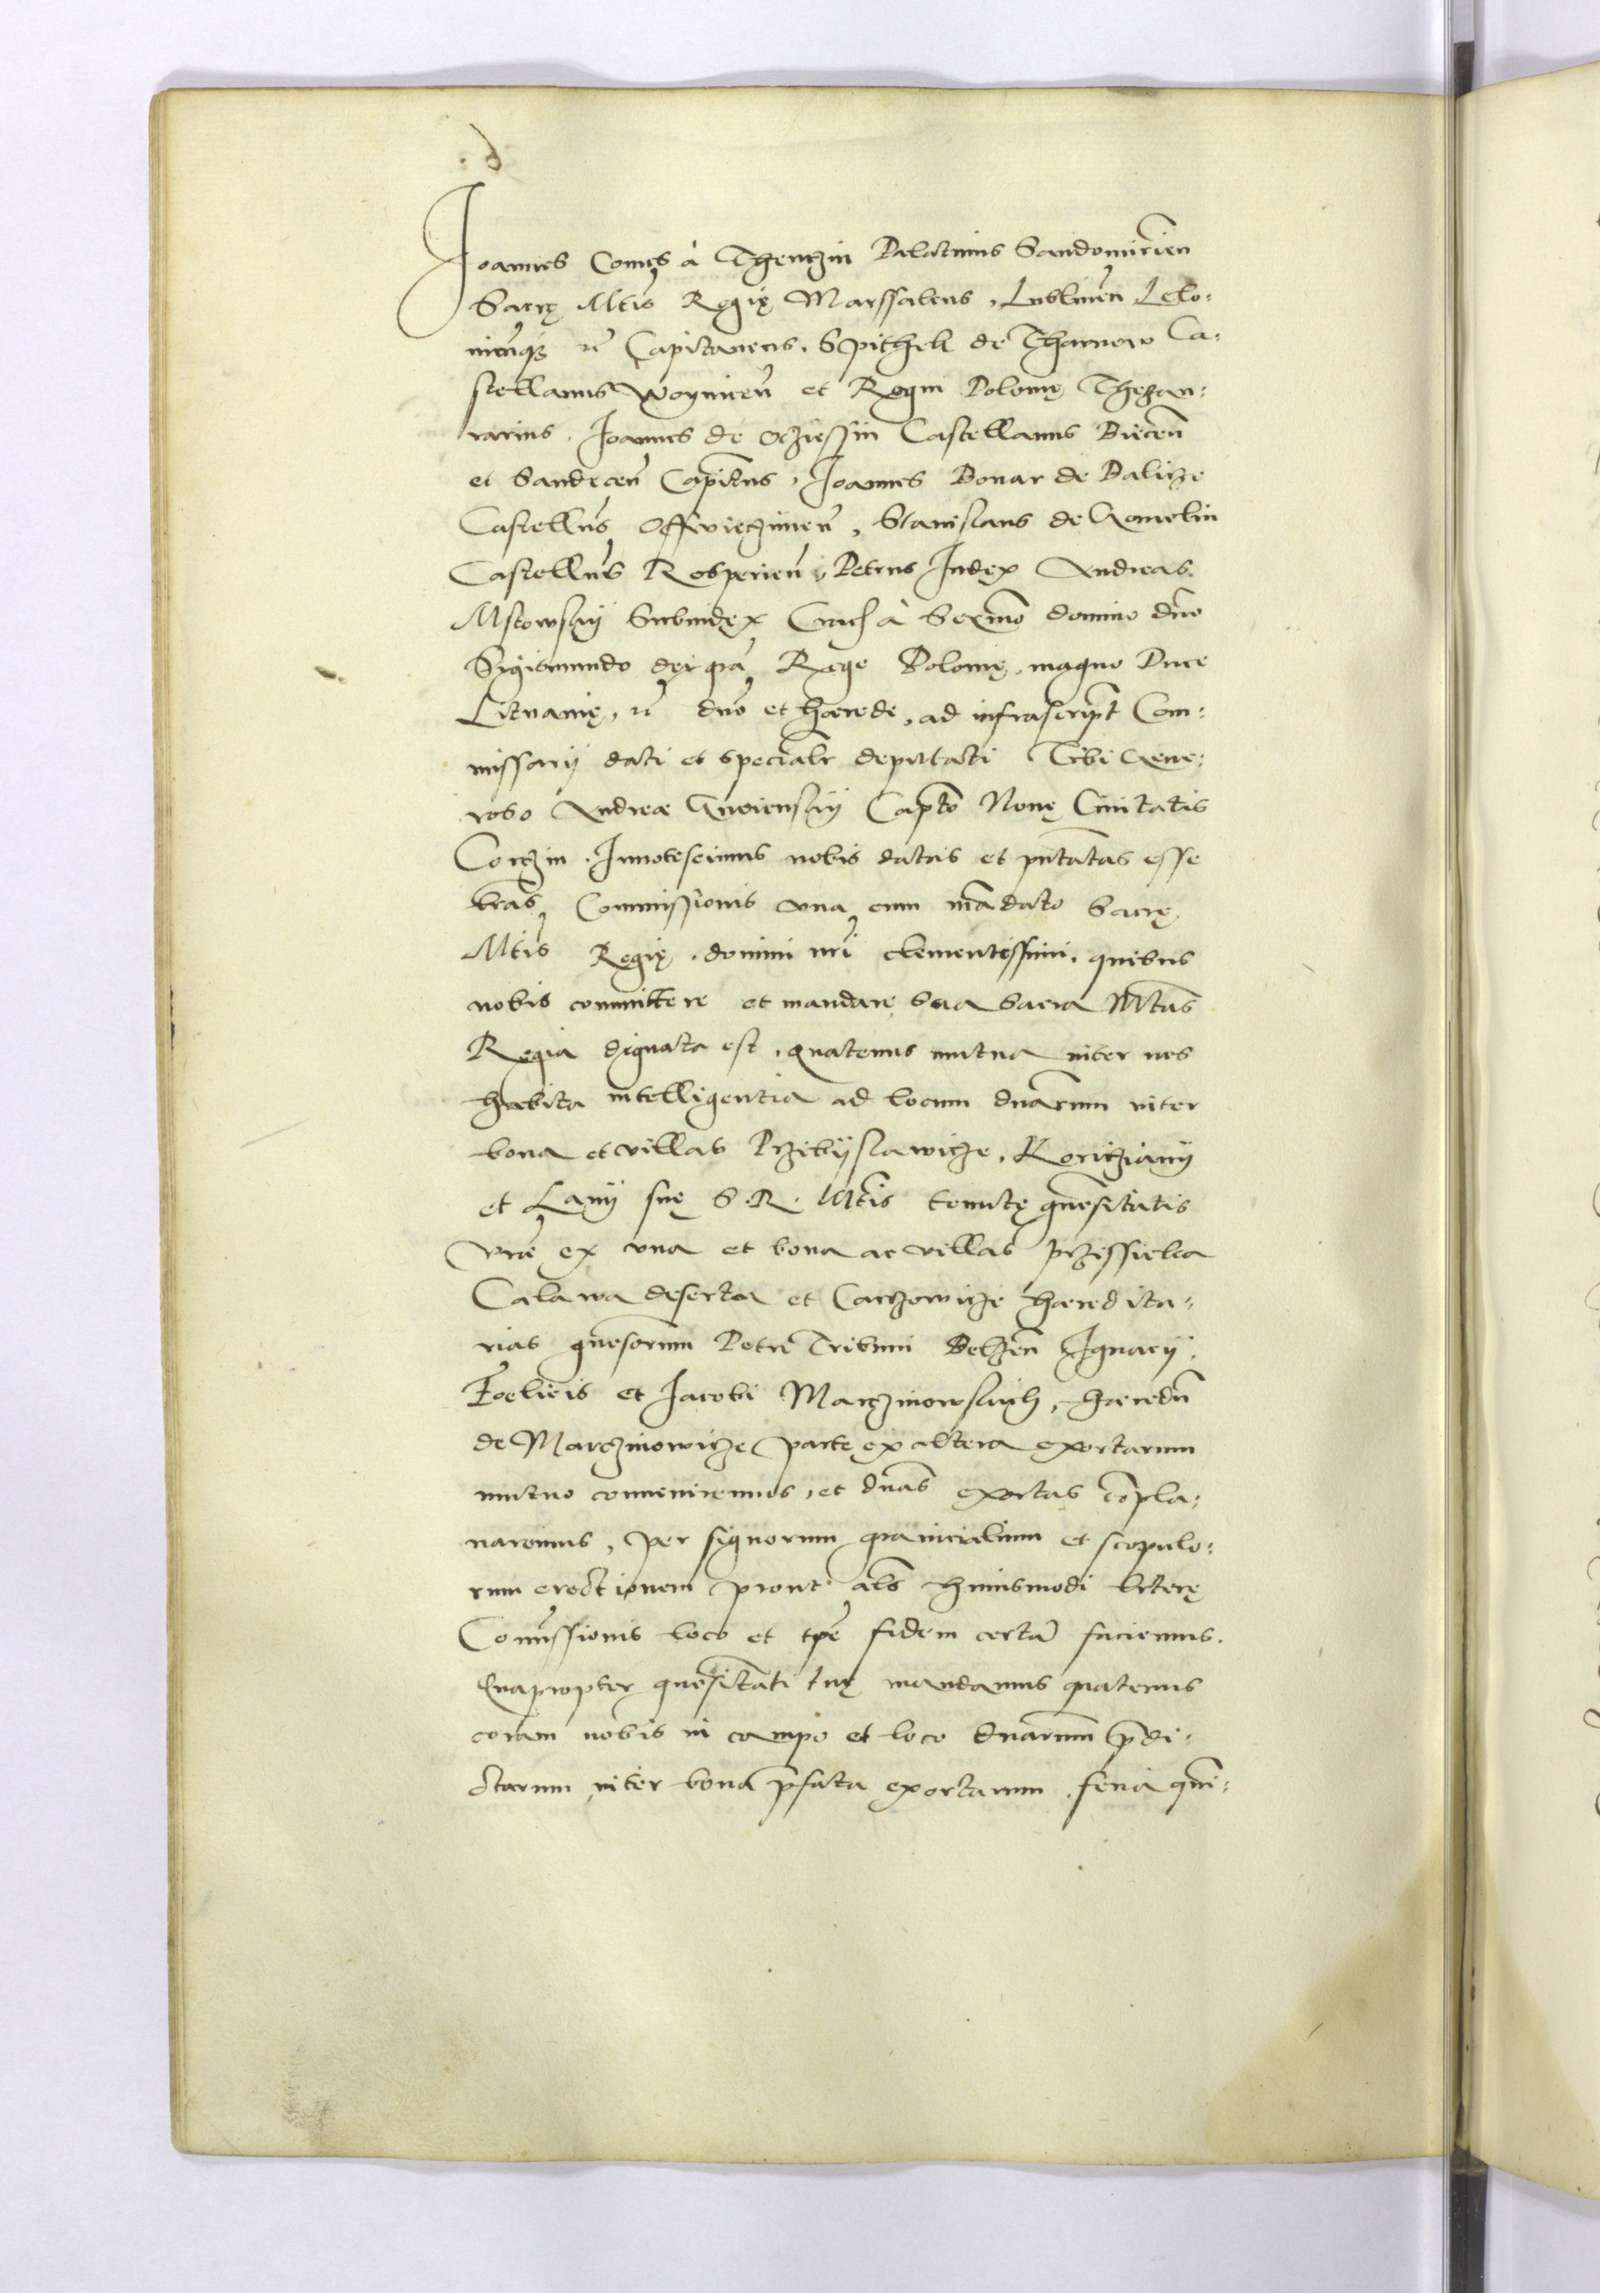 Joannes Comes à Thenczin Palatinus Sandomirien
Sacrę Mtis Regię Marssalcus, Lublinen Lelo,
nienq3 rc Capitaneus. Spithek de Tharnow Ca,
stellanus Woynicen et Regni Polonię Thezau,
rarius. Joannes de Ocziessin Castellanus Biecen
et Sandecen Capitus, Joannes Bonar de Balicze
Castellus Osswięczimen, Stanislaus de Gomolin
Castellus Rosperien, Petrus Judex Andreas
Mstowskij Subiudex Crac à Sermo domino dno
Sigismundo dei gra Rege Polonię, magno Duce
Lituanię, rc dno et hærede, ad infrascript Com,
missarij dati et specialr deputati Tibi Gene,
roso Andreæ Capto Nouę Ciuitatis
Corczin. Innotescimus nobis datas et pntatas esse
lras Commissionis una cum madato Sacrę
Mtis Regię domini nri clementissimi, quibus
nobis committere et mandare sua Sacra Mtas
Regia dignata est, quatenus mutua inter nos
habita intelligentia ad locum dnarum inter
bona et villas Przibijslawicze, Koriczianij
et Lanij suę S. R. Mtis tenutę gnesitatis
Vrae ex una et bona ac villas Przessieka
Calawa deserta et Caczowicze hæredita,
rias gnesorum Petri Tribuni Belzen Ignacij,
Foelicis et Jacobi Marczinowskich, hæredu
de Marczinowicze parte ex altera exortarum
mutuo conueniremus, et dnas exortas copla,
naremus, per signorum granicialium et scopulo,
rum erectionem prout als huiusmodi literę
Comissionis loco et tpe fidem certa faciemus.
Quapropter gnesitati tuę mandamus quatenus
coram nobis in campo et loco dnarum pdi,
ctarum inter bona pfata exortarum, feria qui,